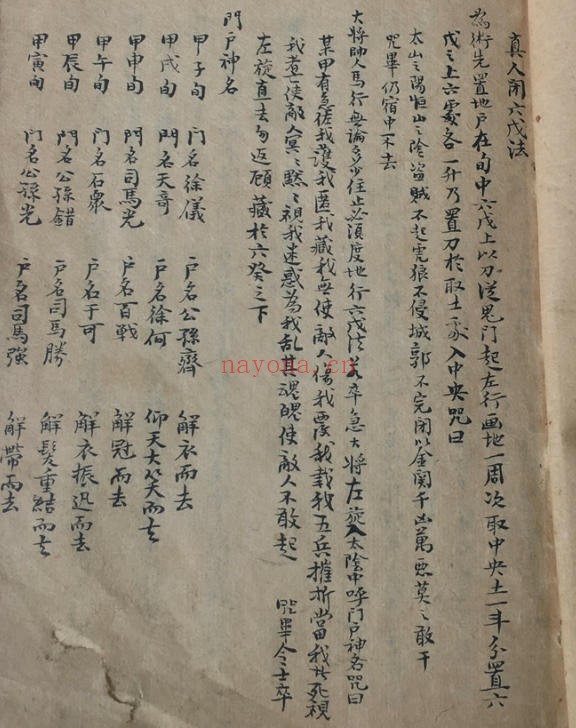 真人閉六戊法
為術先置地戶在旬中六戊上以刀從鬼門起左行画地一周次取中央土一斗分置六
戊之上六處各一升乃置刀於取土處入中央咒曰
太山之陽恒山之陰盗賊不起虎狼不侵城郭不完閉以金関千凶萬悪莫之敢干
咒畢仍宿中不去
大將帥人馬行無論多少往止必須度地行六戊法若卒急大將左旋入太陰中呼門户神名咒曰
某甲有急徒我護我匿我藏我無使敵人傷我覆我載我五兵摧折當我者死視
我者使敵人冥冥黙黙視我迷惑為我乱其魂魄使敵人不敢起 咒畢令士卒
左旋直去勿返顧藏於六癸之下
門户神名
甲子旬 门名徐儀 户名公孫齊 解衣而去
甲戌旬 門名天哥 户名徐何 仰天大笑而去
甲申旬 門名司馬光 户名百戦 解冠而去
甲午旬 门名石衆 户名于可 解衣振迅而去
甲辰旬 門名公孫錯 户名司馬勝 解髪重結而去
甲寅旬 门名公孫光 户名司馬強 解帶而去
nayona.cn